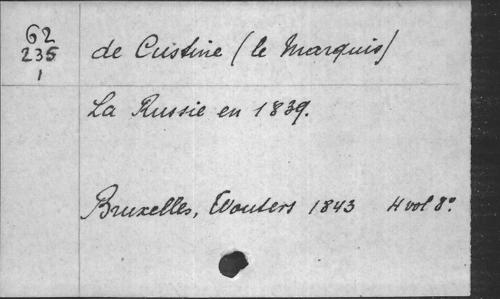 62
235
1
de Custine (le Marquis)
La Russie en 1839.
Bruxelles, Wouters 1843 4 vol 8°